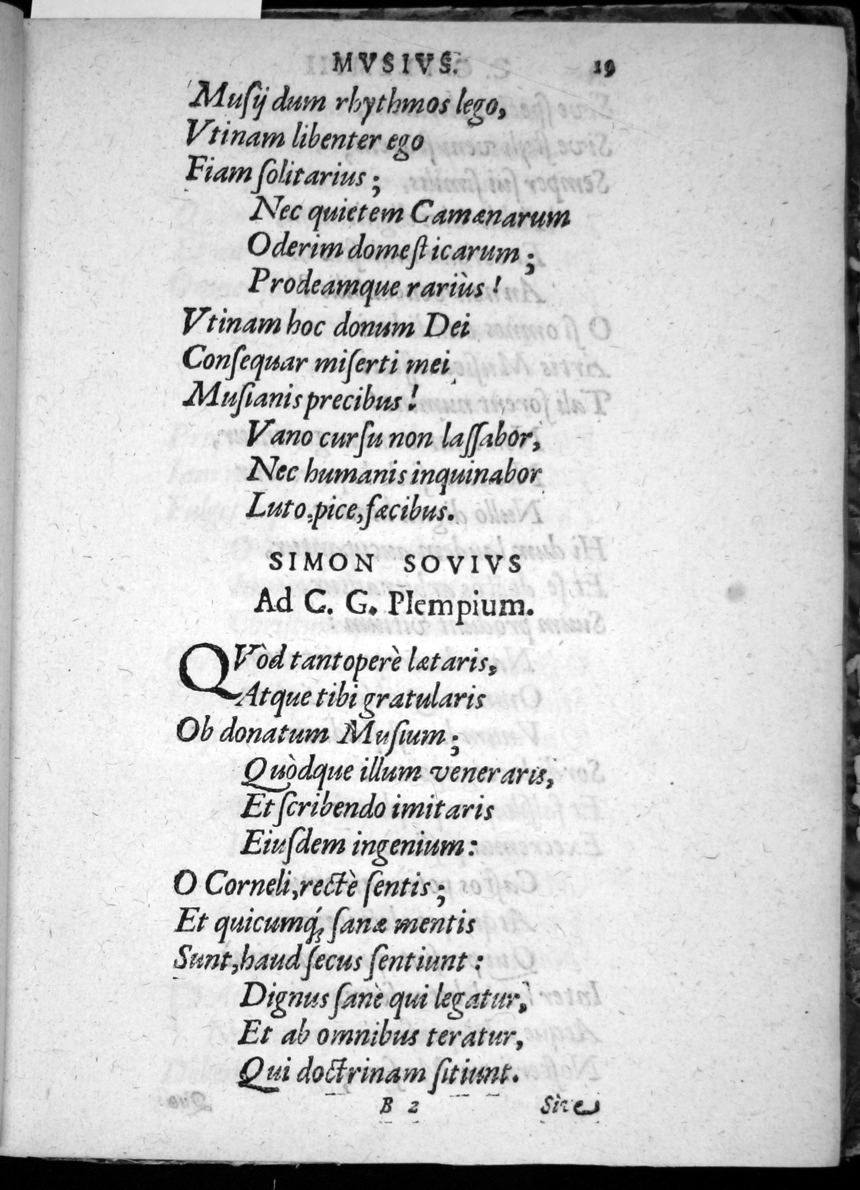 MVSIVS. 19
Muſij dum rhythmos lego,
Vtinam libenter ego
Fiam ſolitarius;
Nec quietem Camænarum
Oderim domeſticarum;
Prodeamque rariùs!
Vtinam hoc donum Dei
Conſequar miſerti mei
Muſianis precibus!
Vano curſu non laſſabor,
Nec humanis inquinabor
Luto, pice, fæcibus.
SIMON SOVIVS
Ad C. G. Plempium.
QVòd tantoperè lætaris,
Atque tibi gratularis
Ob donatum Muſium;
Quòdque illum veneraris,
Et ſcribendo imitaris
Eiuſdem ingenium:
O Corneli, rectè ſentis;
Et quicumq́; ſanæ mentis
Sunt, haud ſecus ſentiunt:
Dignus ſanè qui legatur,
Et ab omnibus teratur,
Qui doctrinam ſitiunt.
B 2 Siue